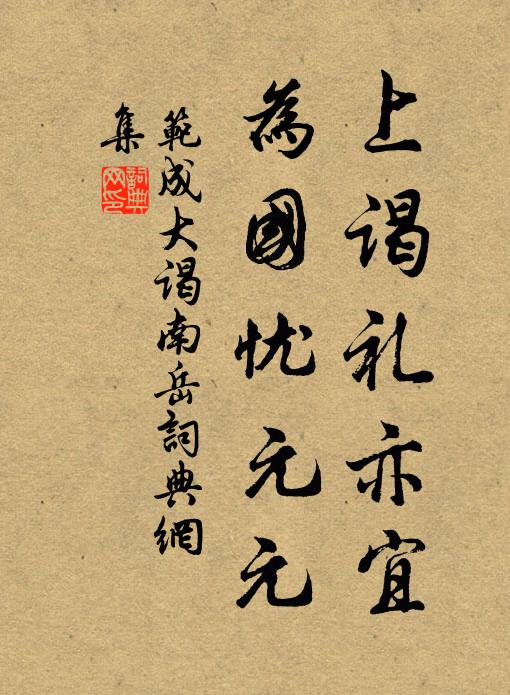 上谒礼亦宜
為國忧元元
範成大谒南岳詞典網
集
詞典
网印